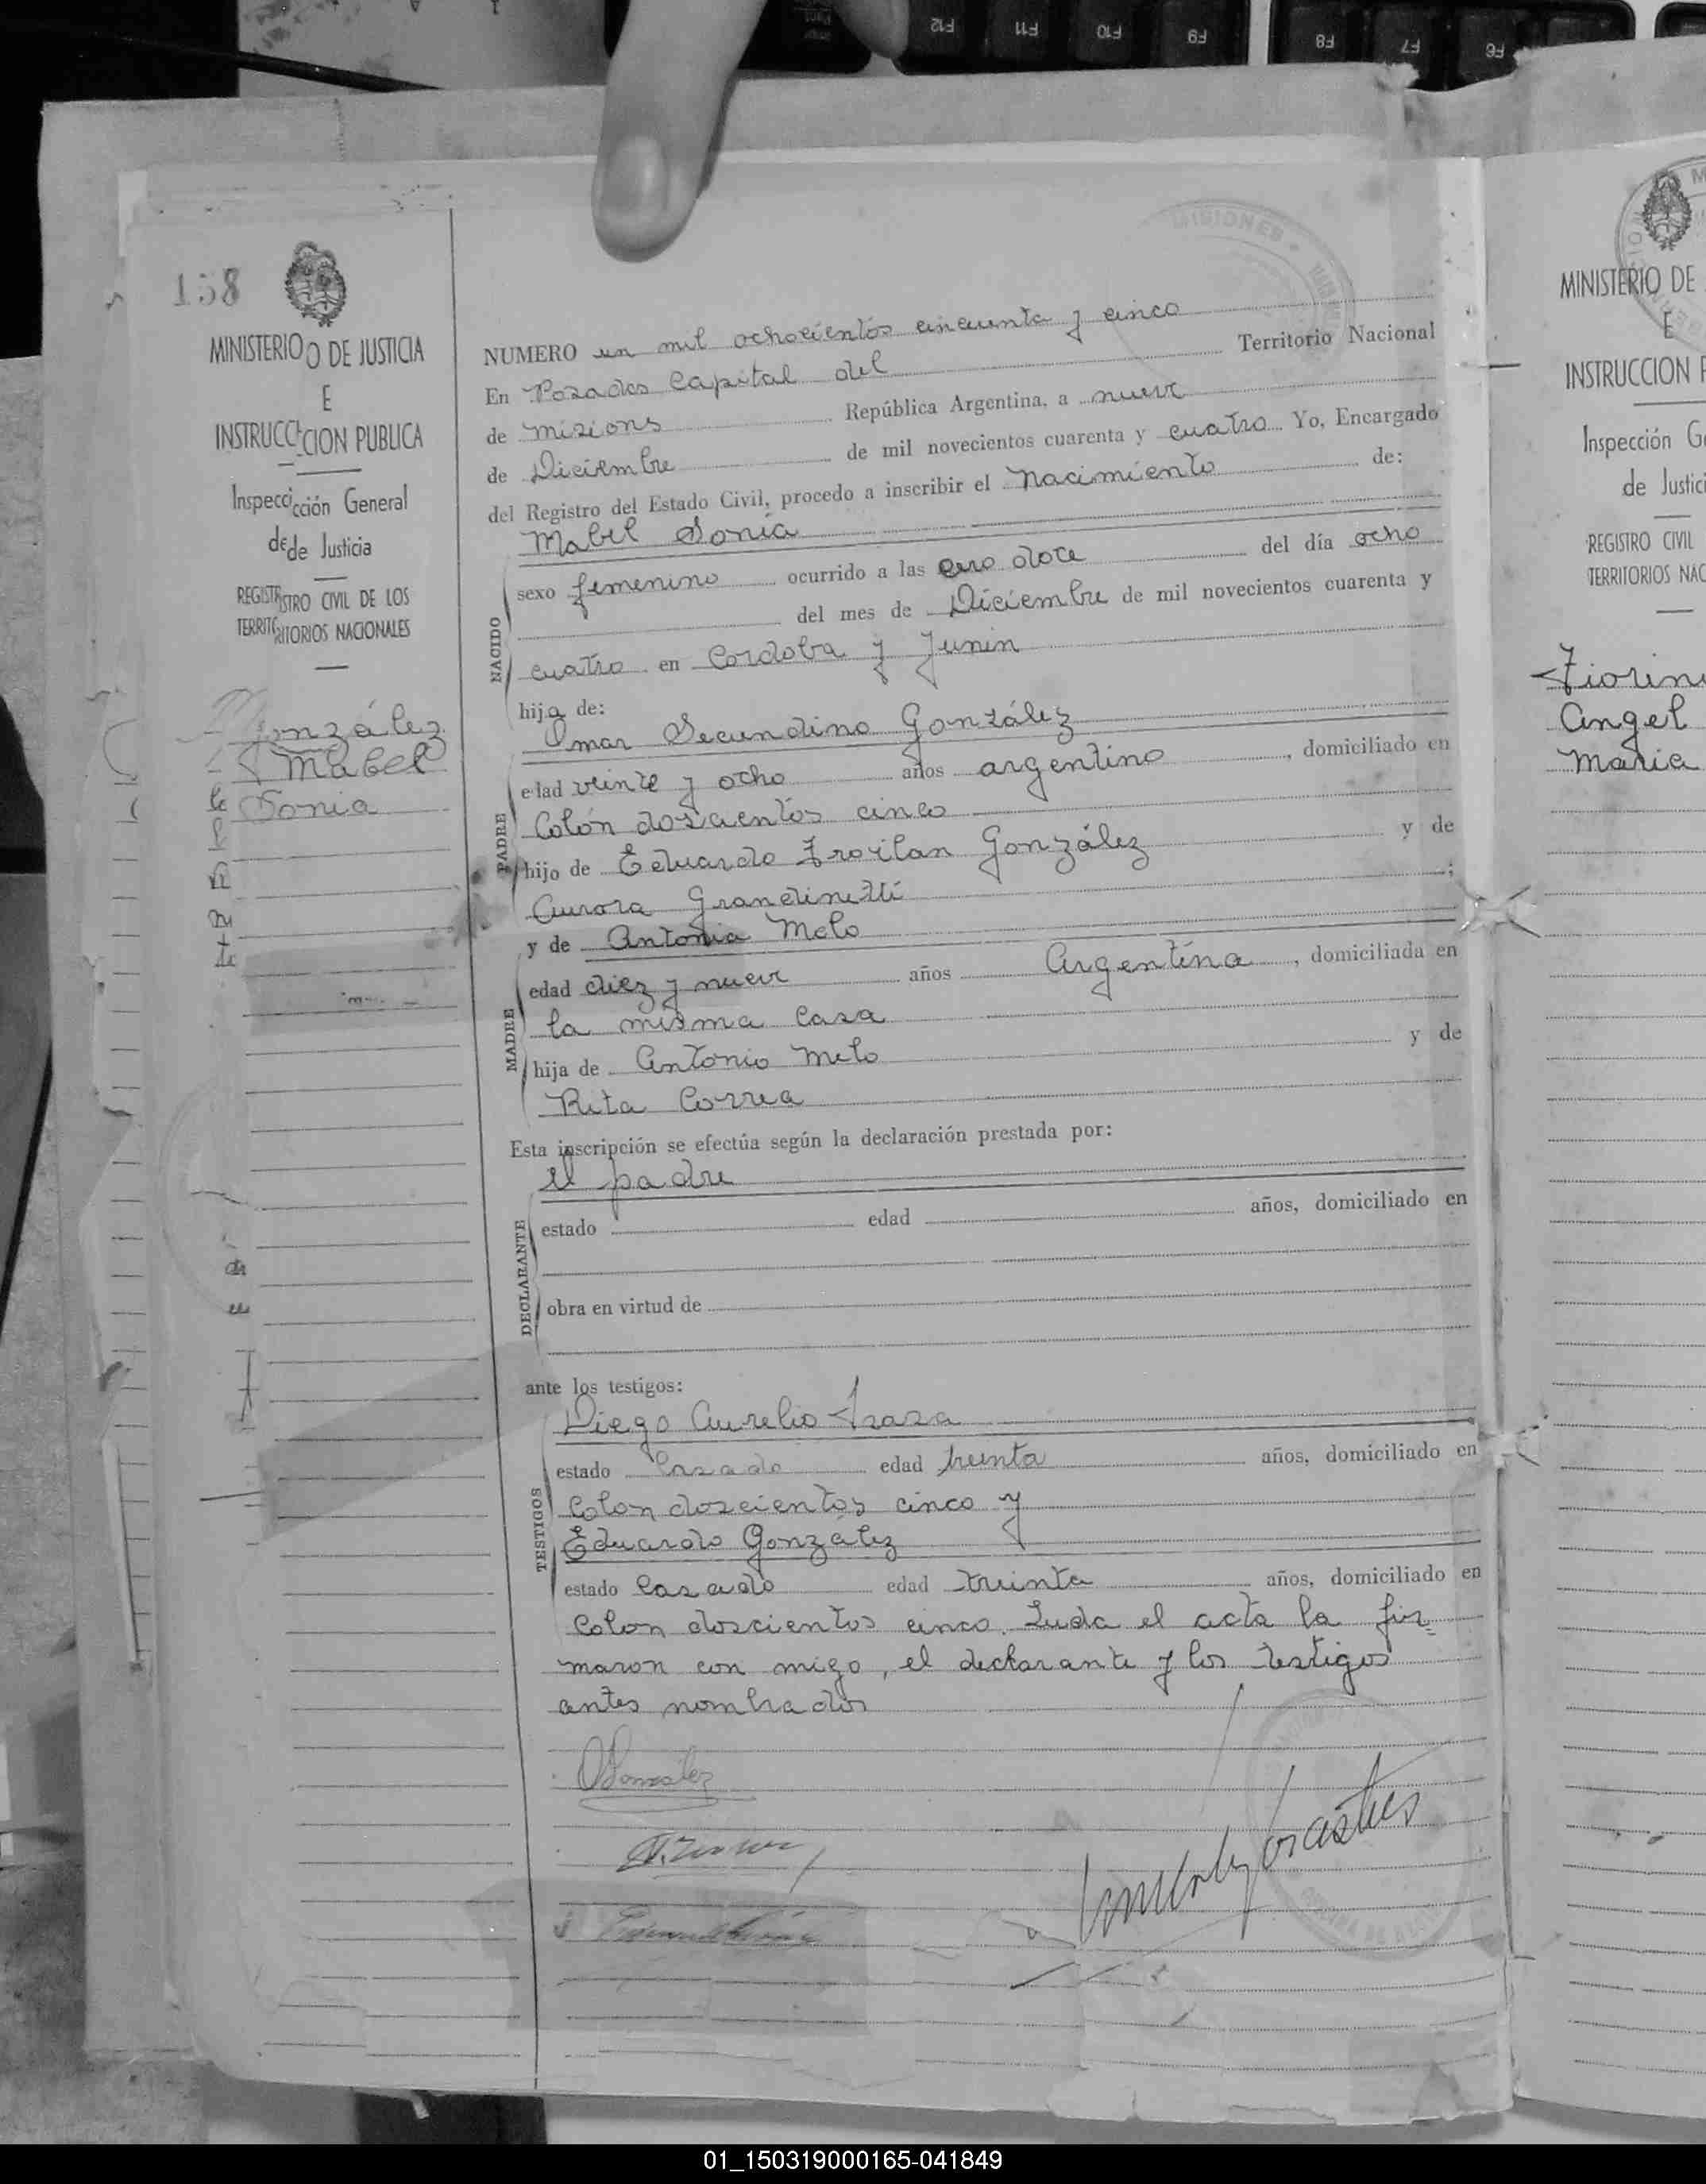 F12 F11 F10 F9 F8 F7 F6
158
MINISTERIO DE JUSTICIA
E
INSTRUCCION PUBLICA
Inspección General
de Justicia
REGISTRO CIVIL DE LOS
TERRITORIOS NACIONALES
González
Mabel
Sonia
MISIONES
NUMERO un mil ochocientos cincuenta y cinco
En Posadas Capital del Territorio Nacional
de Misions República Argentina, a nueve
de Diciembre de mil novecientos cuarenta y cuatro Yo, Encargado
del Registro del Estado Civil, procedo a inscribir el Nacimiento de:
NACIDO
Mabel Sonia
sexo femenino ocurrido a las cero doce del día ocho
del mes de Diciembre de mil novecientos cuarenta y
cuatro en Cordoba y Junin
hija de:
PADRE
Omar Secundino González
edad veinte y ocho años argentino, domiciliado en
Colón doscientos cinco
hijo de Eduardo Froilan González y de
Aurora Grandinetti;
MADRE
y de Antonia Melo
edad diez y nueve años Argentina, domiciliada en
la misma casa
hija de Antonio Melo y de
Rita Correa
Esta inscripción se efectúa según la declaración prestada por:
DECLARANTE
el padre
estado edad años, domiciliado en
obra en virtud de
ante los testigos:
TESTIGOS
Diego Aurelio
estado Casado edad treinta años, domiciliado en
Colon doscientos cinco y
Eduardo González
estado Casado edad treinta años, domiciliado en
Colon doscientos cinco. Leida el acta la fir=
maron con migo, el declarante y los testigos
antes nombrados
OGonzález
MINISTERIO DE
E
INSTRUCCION P
Inspección G
de Justici
REGISTRO CIVIL
TERRITORIOS NAC
Angel
Maria
01_150319000165-041849